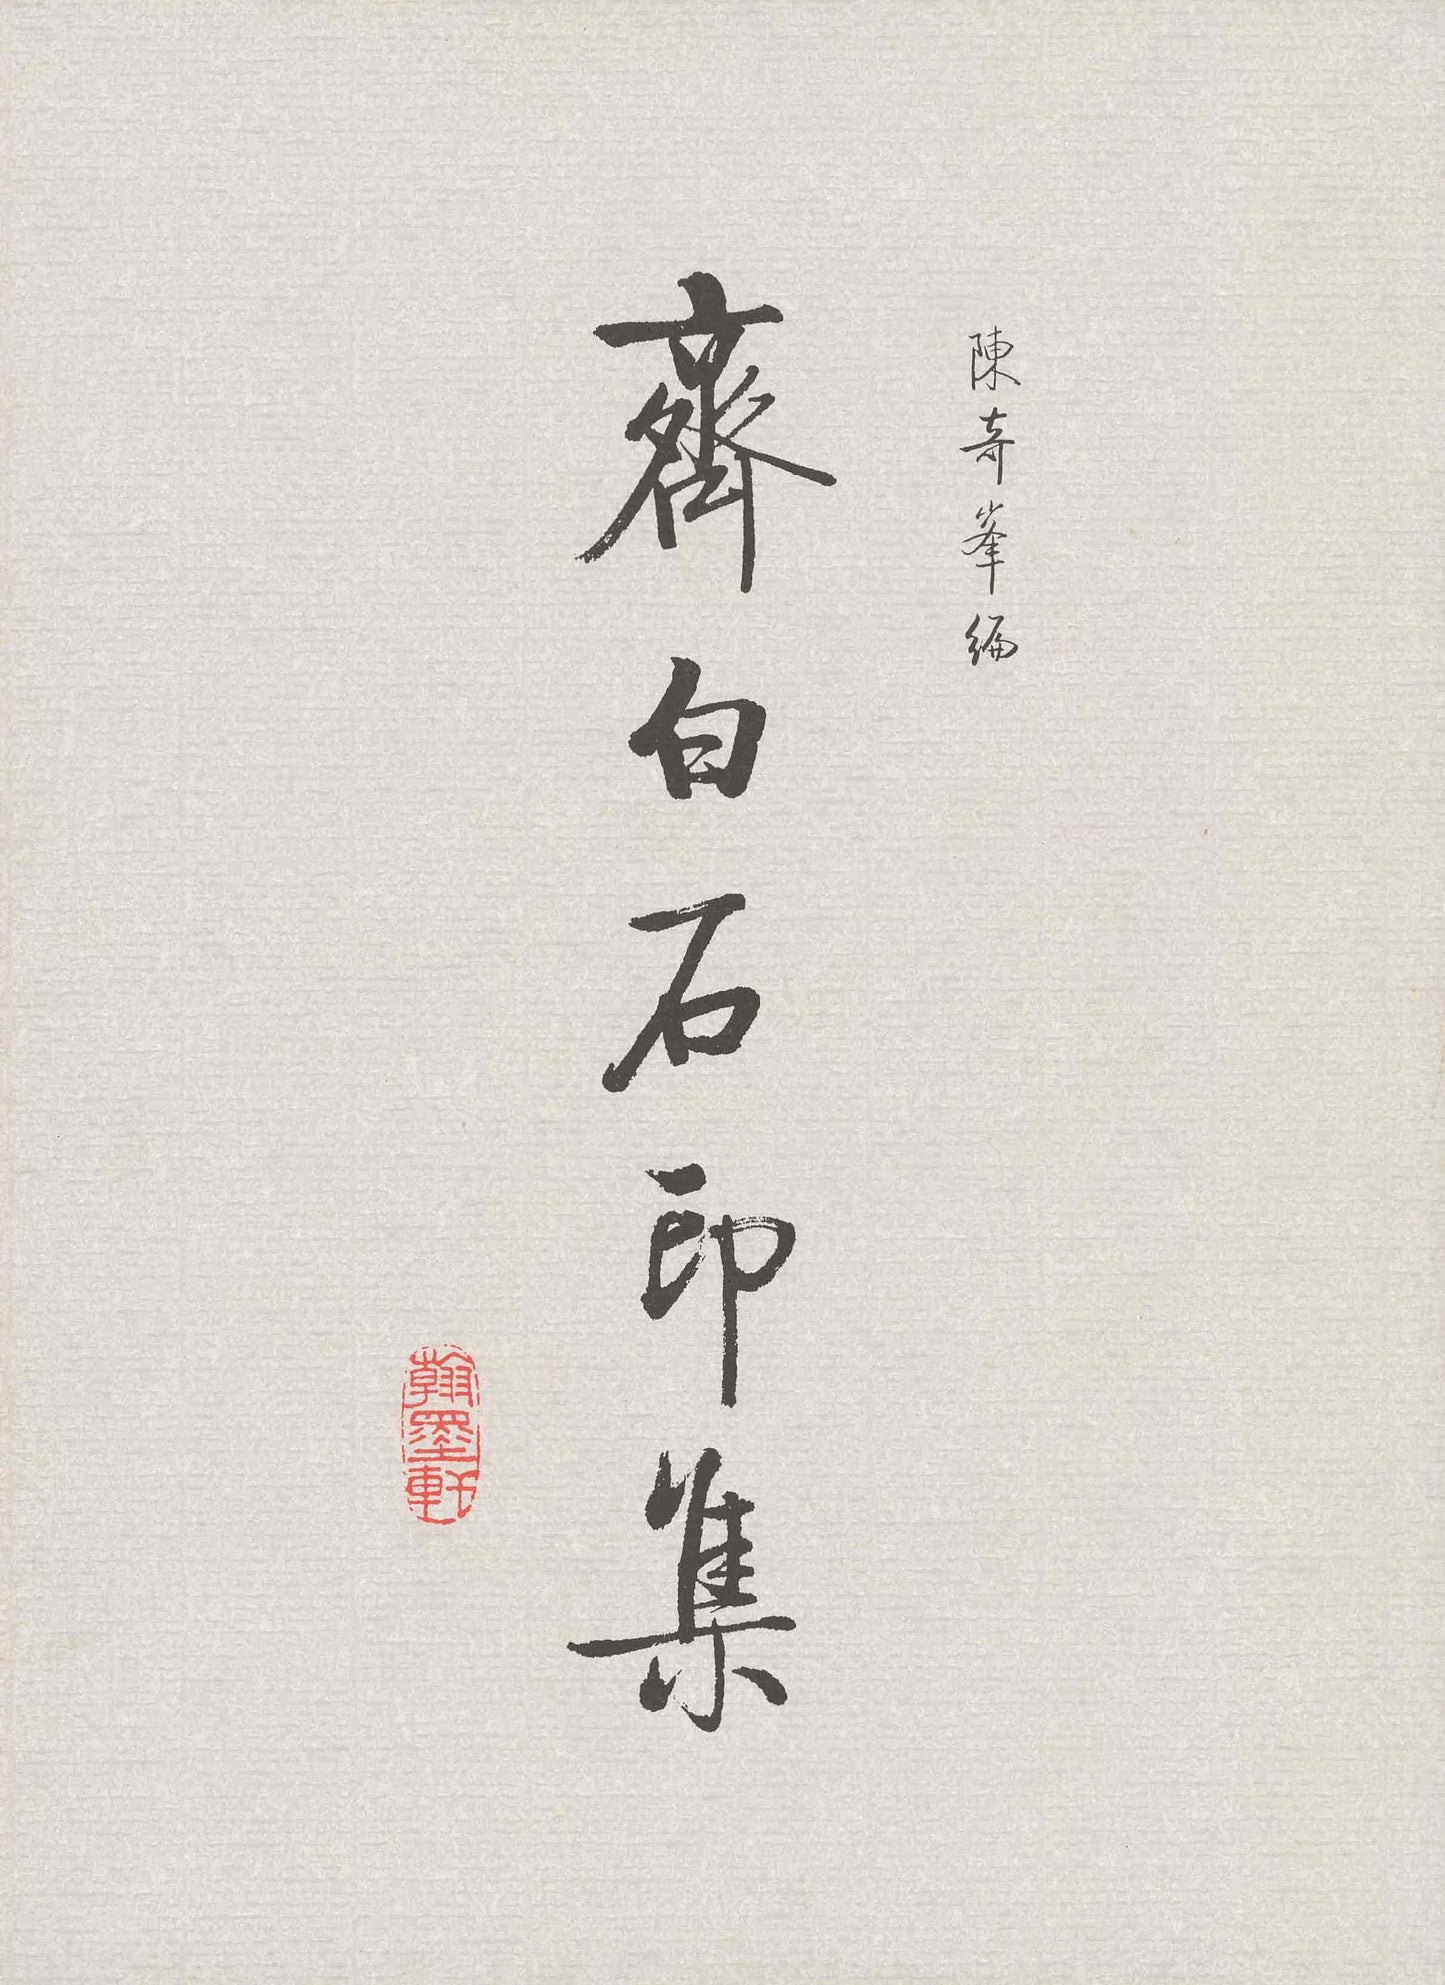 陳奇峯編
齊白石印集
翰墨軒